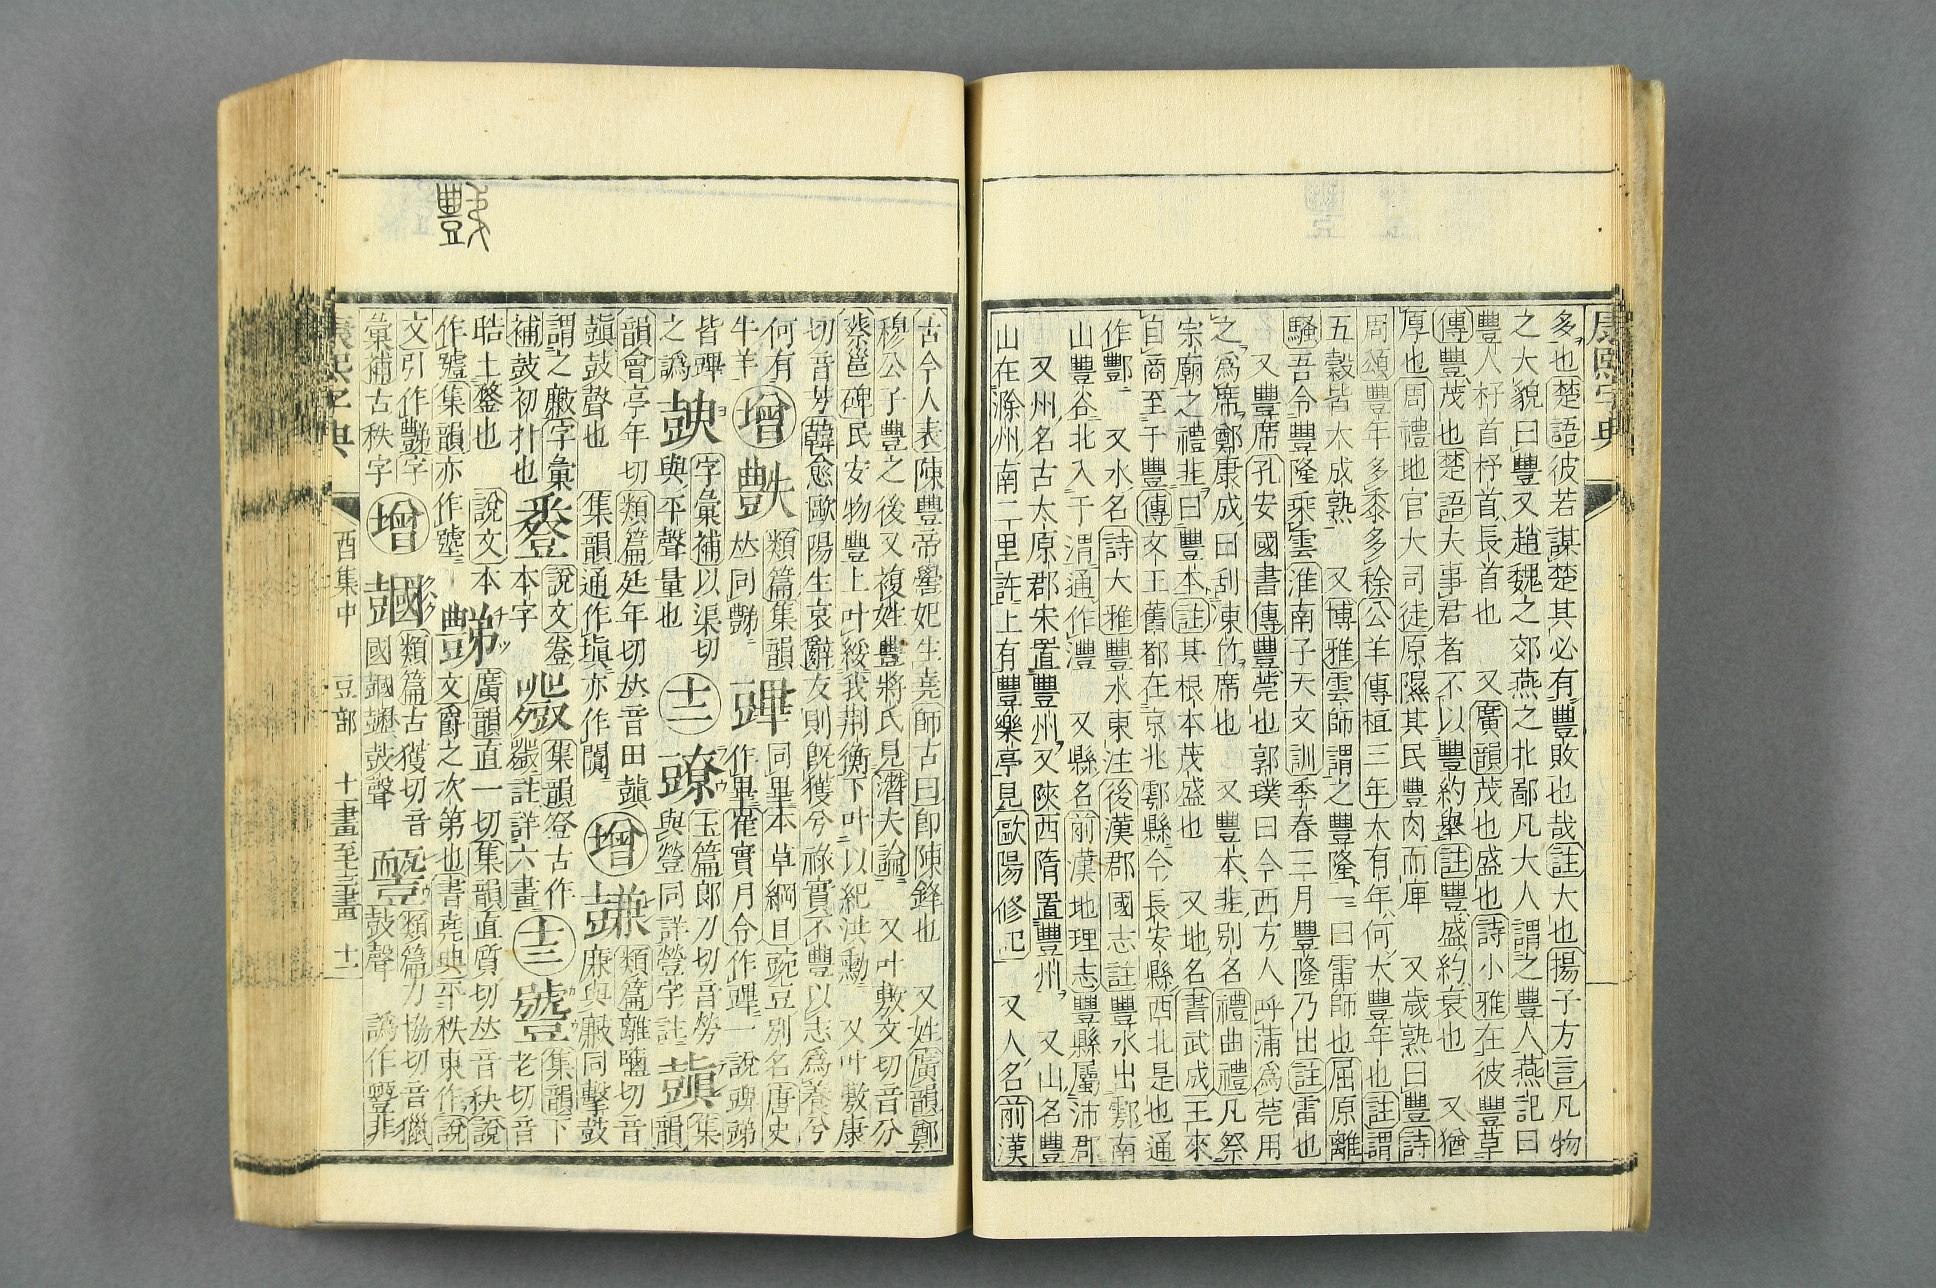 康熙字典
多也楚語彼若謀楚其必有豐敗也哉註大也揚子方言凡物
之大貌曰豐又趙魏之郊燕之北鄙凡大人謂之豐人燕記曰
豐人杼首杼首長首也 又廣韻茂也盛也詩小雅在彼豐草
傳豐茂也楚語夫事君者不以豐約舉註豐盛約衰也 又猶
厚也周禮地官大司徒原隰其民豐肉而庳 又歲熟曰豐詩
周頌豐年多黍多稌公羊傳桓三年大有年何大豐年也註謂
五穀皆大成熟 又博雅雲師謂之豐隆一曰雷師也屈原離
騷吾令豐隆乘雲淮南子天文訓季春三月豐隆乃出註雷也
又豐席孔安國書傳豐莞也郭璞曰今西方人呼蒲爲莞用
之爲席鄭康成曰刮凍竹席也 又豐本韭別名禮曲禮凡祭
宗廟之禮韭曰豐本註其根本茂盛也 又地名書武成王來
自商至于豐傳文王舊都在京兆鄠縣今長安縣西北是也通
作酆 又水名詩大雅豐水東注後漢郡國志註豐水出鄠南
山豐谷北入于渭通作灃 又縣名前漢地理志豐縣屬沛郡
又州名古太原郡宋置豐州又陝西隋置豐州 又山名豐
山在滁州南二里許上有豐樂亭見歐陽修記 又人名前漢
古今人表陳豐帝嚳妃生堯師古曰卽陳鋒也 又姓廣韻鄭
穆公子豐之後又複姓豐將氏見潛夫論 又叶敷文切音分
蔡邕碑民安物豐上叶綏我荆衡下叶以紀洪勳 又叶敷康
切音芳韓愈歐陽生哀辭友則旣獲兮祿實不豐以志爲養兮
何有牛羊 增 豑 類篇集韻𠀤同豑 䟆 同畢本草綱目豌豆別名唐史
作畢崔實月令作䟆一說䟆豍
皆䟆之譌 字彙補以渠切與平聲量也 十二 玉篇郞刀切音勞與䝁同詳䝁字註 韻
韻會亭年切類篇延年切𠀤音田鼓聲也集韻通作塡亦作闐 增 類篇離鹽切音廉與䶠同擊鼓
謂之䶠字彙補鼓初打也 豋 本字 說文 集韻登古作 註詳六畫 十三 號 集韻下老切音
晧土鍪也 說文本作號集韻亦作號 豑 廣韻直一切集韻直質切𠀤音秩說
文爵之次第也書堯典平秩東作說文引作豑字彙補古秩字 增 類篇古獲切音國鼓聲 類篇力協切音獵鼓聲 譌作 非
康熙字典 酉集中 豆部 十畫至十三畫 十二